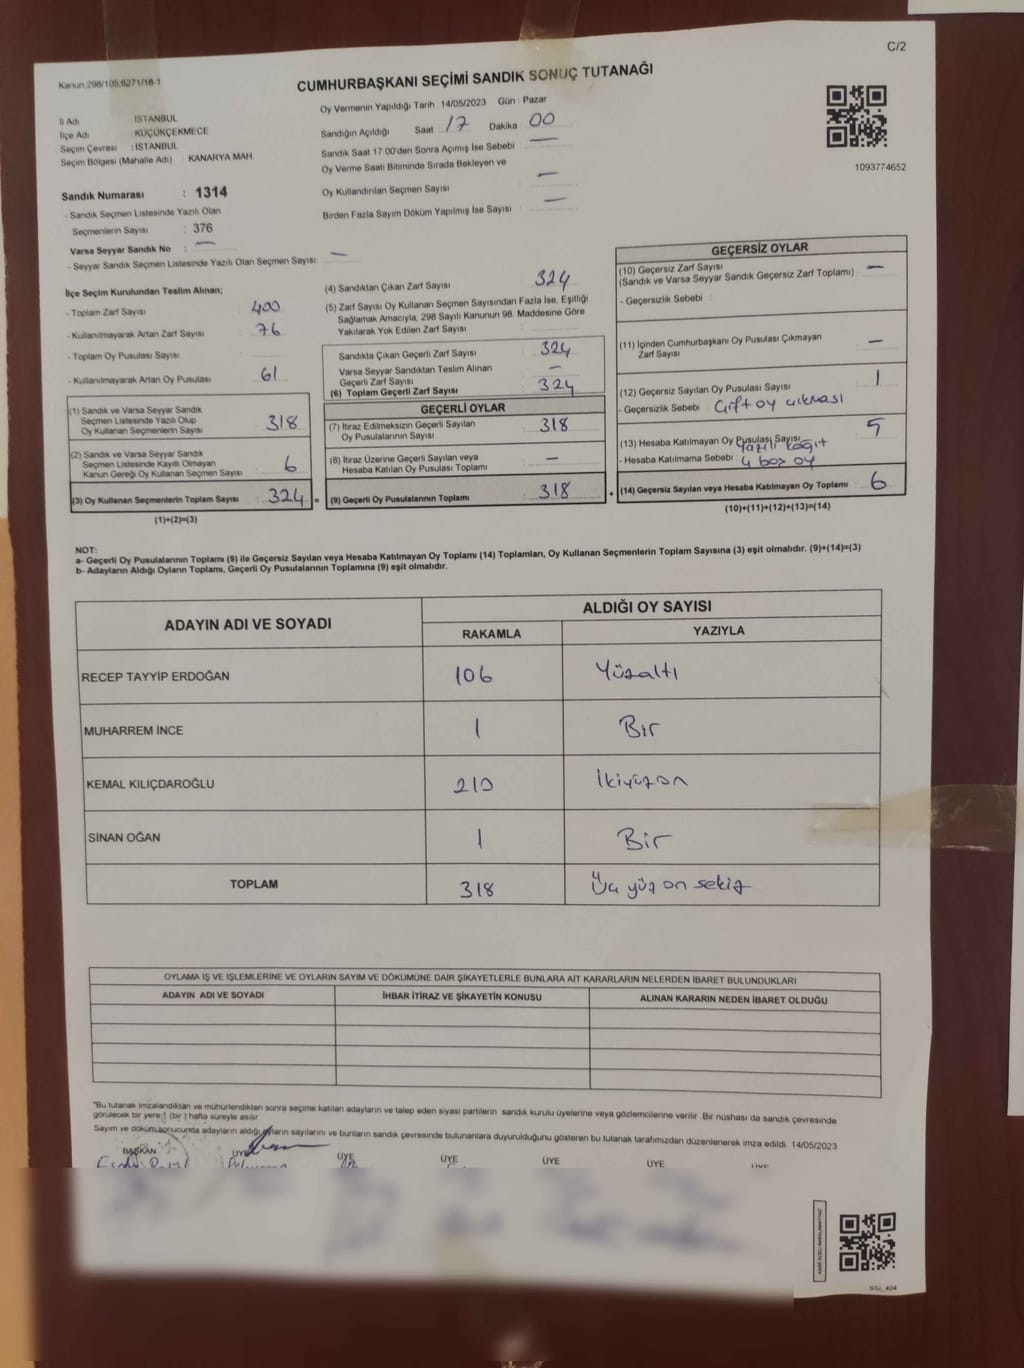 C/2
Kanun 298/105,6271/18-1
CUMHURBAŞKANI SEÇİMİ SANDIK SONUÇ TUTANAĞI
Oy Vermenin Yapıldığı Tarih : 14/05/2023 Gün : Pazar
İl Adı : İSTANBUL
İlçe Adı : KÜÇÜKÇEKMECE
Seçim Çevresi : İSTANBUL
Seçim Bölgesi (Mahalle Adı) : KANARYA MAH.
Sandığın Açıldığı Saat 17 Dakika 00
Sandık Saat 17:00'den Sonra Açımış İse Sebebi —
Oy Verme Saati Bitiminde Sırada Bekleyen ve
Oy Kullandırılan Seçmen Sayısı —
Birden Fazla Sayım Döküm Yapılmış İse Sayısı —
1093774652
Sandık Numarası : 1314
- Sandık Seçmen Listesinde Yazılı Olan
Seçmenlerin Sayısı : 376
Varsa Seyyar Sandık No : —
- Seyyar Sandık Seçmen Listesinde Yazılı Olan Seçmen Sayısı: —
İlçe Seçim Kurulundan Teslim Alınan;
- Toplam Zarf Sayısı : 400
- Kullanılmayarak Artan Zarf Sayısı : 76
- Toplam Oy Pusulası Sayısı :
- Kullanılmayarak Artan Oy Pusulası : 61
(1) Sandık ve Varsa Seyyar Sandık
Seçmen Listesinde Yazılı Olup
Oy Kullanan Seçmenlerin Sayısı : 318
(2) Sandık ve Varsa Seyyar Sandık
Seçmen Listesinde Kayıtlı Olmayan
Kanun Gereği Oy Kullanan Seçmen Sayısı : 6
(3) Oy Kullanan Seçmenlerin Toplam Sayısı : 324 =
(1)+(2)=(3)
(4) Sandıktan Çıkan Zarf Sayısı : 324
(5) Zarf Sayısı Oy Kullanan Seçmen Sayısından Fazla İse, Eşitliği
Sağlamak Amacıyla, 298 Sayılı Kanunun 98. Maddesine Göre
Yakılarak Yok Edilen Zarf Sayısı :
Sandıkta Çıkan Geçerli Zarf Sayısı : 324
Varsa Seyyar Sandıktan Teslim Alınan
Geçerli Zarf Sayısı : —
(6) Toplam Geçerli Zarf Sayısı : 324
GEÇERLİ OYLAR
(7) İtiraz Edilmeksizin Geçerli Sayılan
Oy Pusulalarının Sayısı : 318
(8) İtiraz Üzerine Geçerli Sayılan veya
Hesaba Katılan Oy Pusulası Toplamı : —
(9) Geçerli Oy Pusulalarının Toplamı : 318 +
GEÇERSİZ OYLAR
(10) Geçersiz Zarf Sayısı : —
(Sandık ve Varsa Seyyar Sandık Geçersiz Zarf Toplamı)
- Geçersizlik Sebebi :
(11) İçinden Cumhurbaşkanı Oy Pusulası Çıkmayan
Zarf Sayısı : —
(12) Geçersiz Sayılan Oy Pusulası Sayısı : 1
- Geçersizlik Sebebi : Çift oy çıkması
(13) Hesaba Katılmayan Oy Pusulası Sayısı : 5
- Hesaba Katılmama Sebebi : Yazılı kağıt
4 boş oy
(14) Geçersiz Sayılan veya Hesaba Katılmayan Oy Toplamı : 6
(10)+(11)+(12)+(13)=(14)
NOT:
a- Geçerli Oy Pusulalarının Toplamı (9) ile Geçersiz Sayılan veya Hesaba Katılmayan Oy Toplamı (14) Toplamları, Oy Kullanan Seçmenlerin Toplam Sayısına (3) eşit olmalıdır. (9)+(14)=(3)
b- Adayların Aldığı Oyların Toplamı, Geçerli Oy Pusulalarının Toplamına (9) eşit olmalıdır.
ADAYIN ADI VE SOYADI
ALDIĞI OY SAYISI
RAKAMLA YAZIYLA
RECEP TAYYİP ERDOĞAN 106 Yüzaltı
MUHARREM İNCE 1 Bir
KEMAL KILIÇDAROĞLU 210 İkiyüzon
SİNAN OĞAN 1 Bir
TOPLAM 318 Üç yüz on sekiz
OYLAMA İŞ VE İŞLEMLERİNE VE OYLARIN SAYIM VE DÖKÜMÜNE DAİR ŞİKAYETLERLE BUNLARA AİT KARARLARIN NELERDEN İBARET BULUNDUKLARI
ADAYIN ADI VE SOYADI İHBAR İTİRAZ VE ŞİKAYETİN KONUSU ALINAN KARARIN NEDEN İBARET OLDUĞU
*Bu tutanak imzalandıktan ve mühürlendikten sonra seçime katılan adayların ve talep eden siyasi partilerin sandık kurulu üyelerine veya gözlemcilerine verilir. Bir nüshası da sandık çevresinde
görülecek bir yere 1 (bir) hafta süreyle asılır.
Sayım ve döküm sonucunda adayların aldığı oyların sayılarını ve bunların sandık çevresinde bulunanlara duyurulduğunu gösteren bu tutanak tarafımızdan düzenlenerek imza edildi. 14/05/2023
BAŞKAN ÜYE ÜYE ÜYE ÜYE ÜYE ÜYE